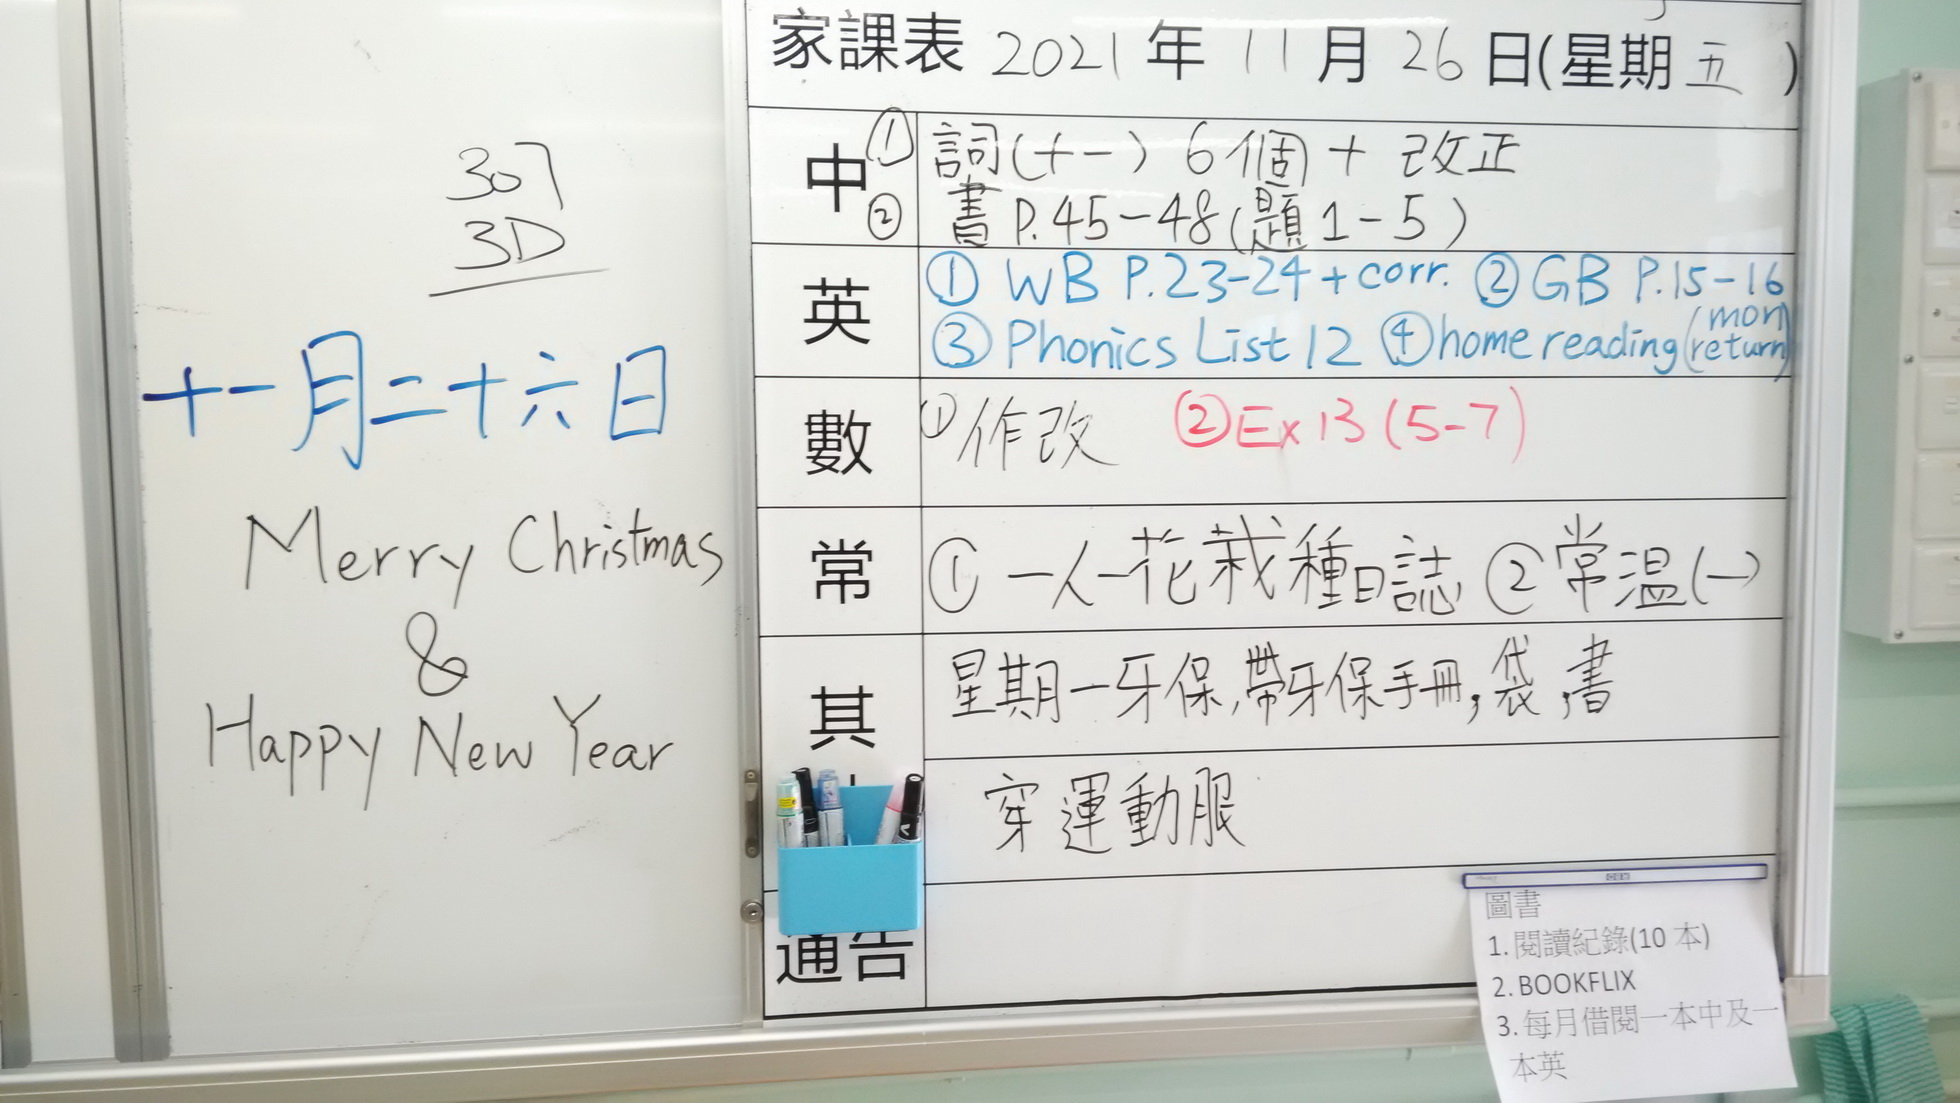 307
3D
十一月二十六日
Merry Christmas
&
Happy New Year
家課表 2021 年 11 月 26 日(星期 五 )
中 ① 詞(十一) 6個 + 改正
② 書 P.45-48(題1-5)
英 ① WB P.23-24 + corr. ② GB P.15-16
③ Phonics List 12 ④ home reading (mon return)
數 ① 作改 ② Ex 13 (5-7)
常 ① 一人一花栽種日誌 ② 常温(一)
其 星期一牙保,帶牙保手冊,袋,書
穿運動服
通告
圖書
1. 閱讀紀錄(10 本)
2. BOOKFLIX
3. 每月借閱一本中及一
本英